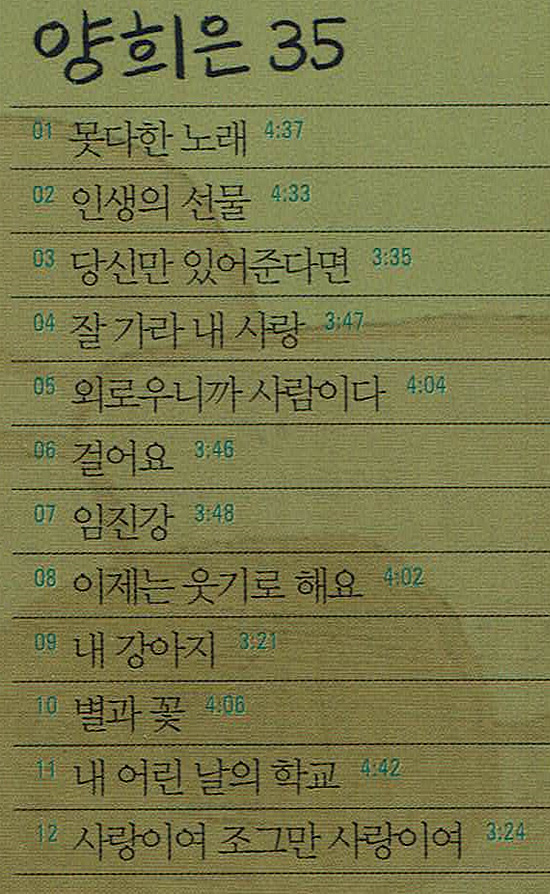 양희은 35
01 못다한 노래 4:37
02 인생의 선물 4:33
03 당신만 있어준다면 3:35
04 잘 가라 내 사랑 3:47
05 외로우니까 사람이다 4:04
06 걸어요 3:46
07 임진강 3:48
08 이제는 웃기로 해요 4:02
09 내 강아지 3:21
10 별과 꽃 4:06
11 내 어린 날의 학교 4:42
12 사랑이여 조그만 사랑이여 3:24